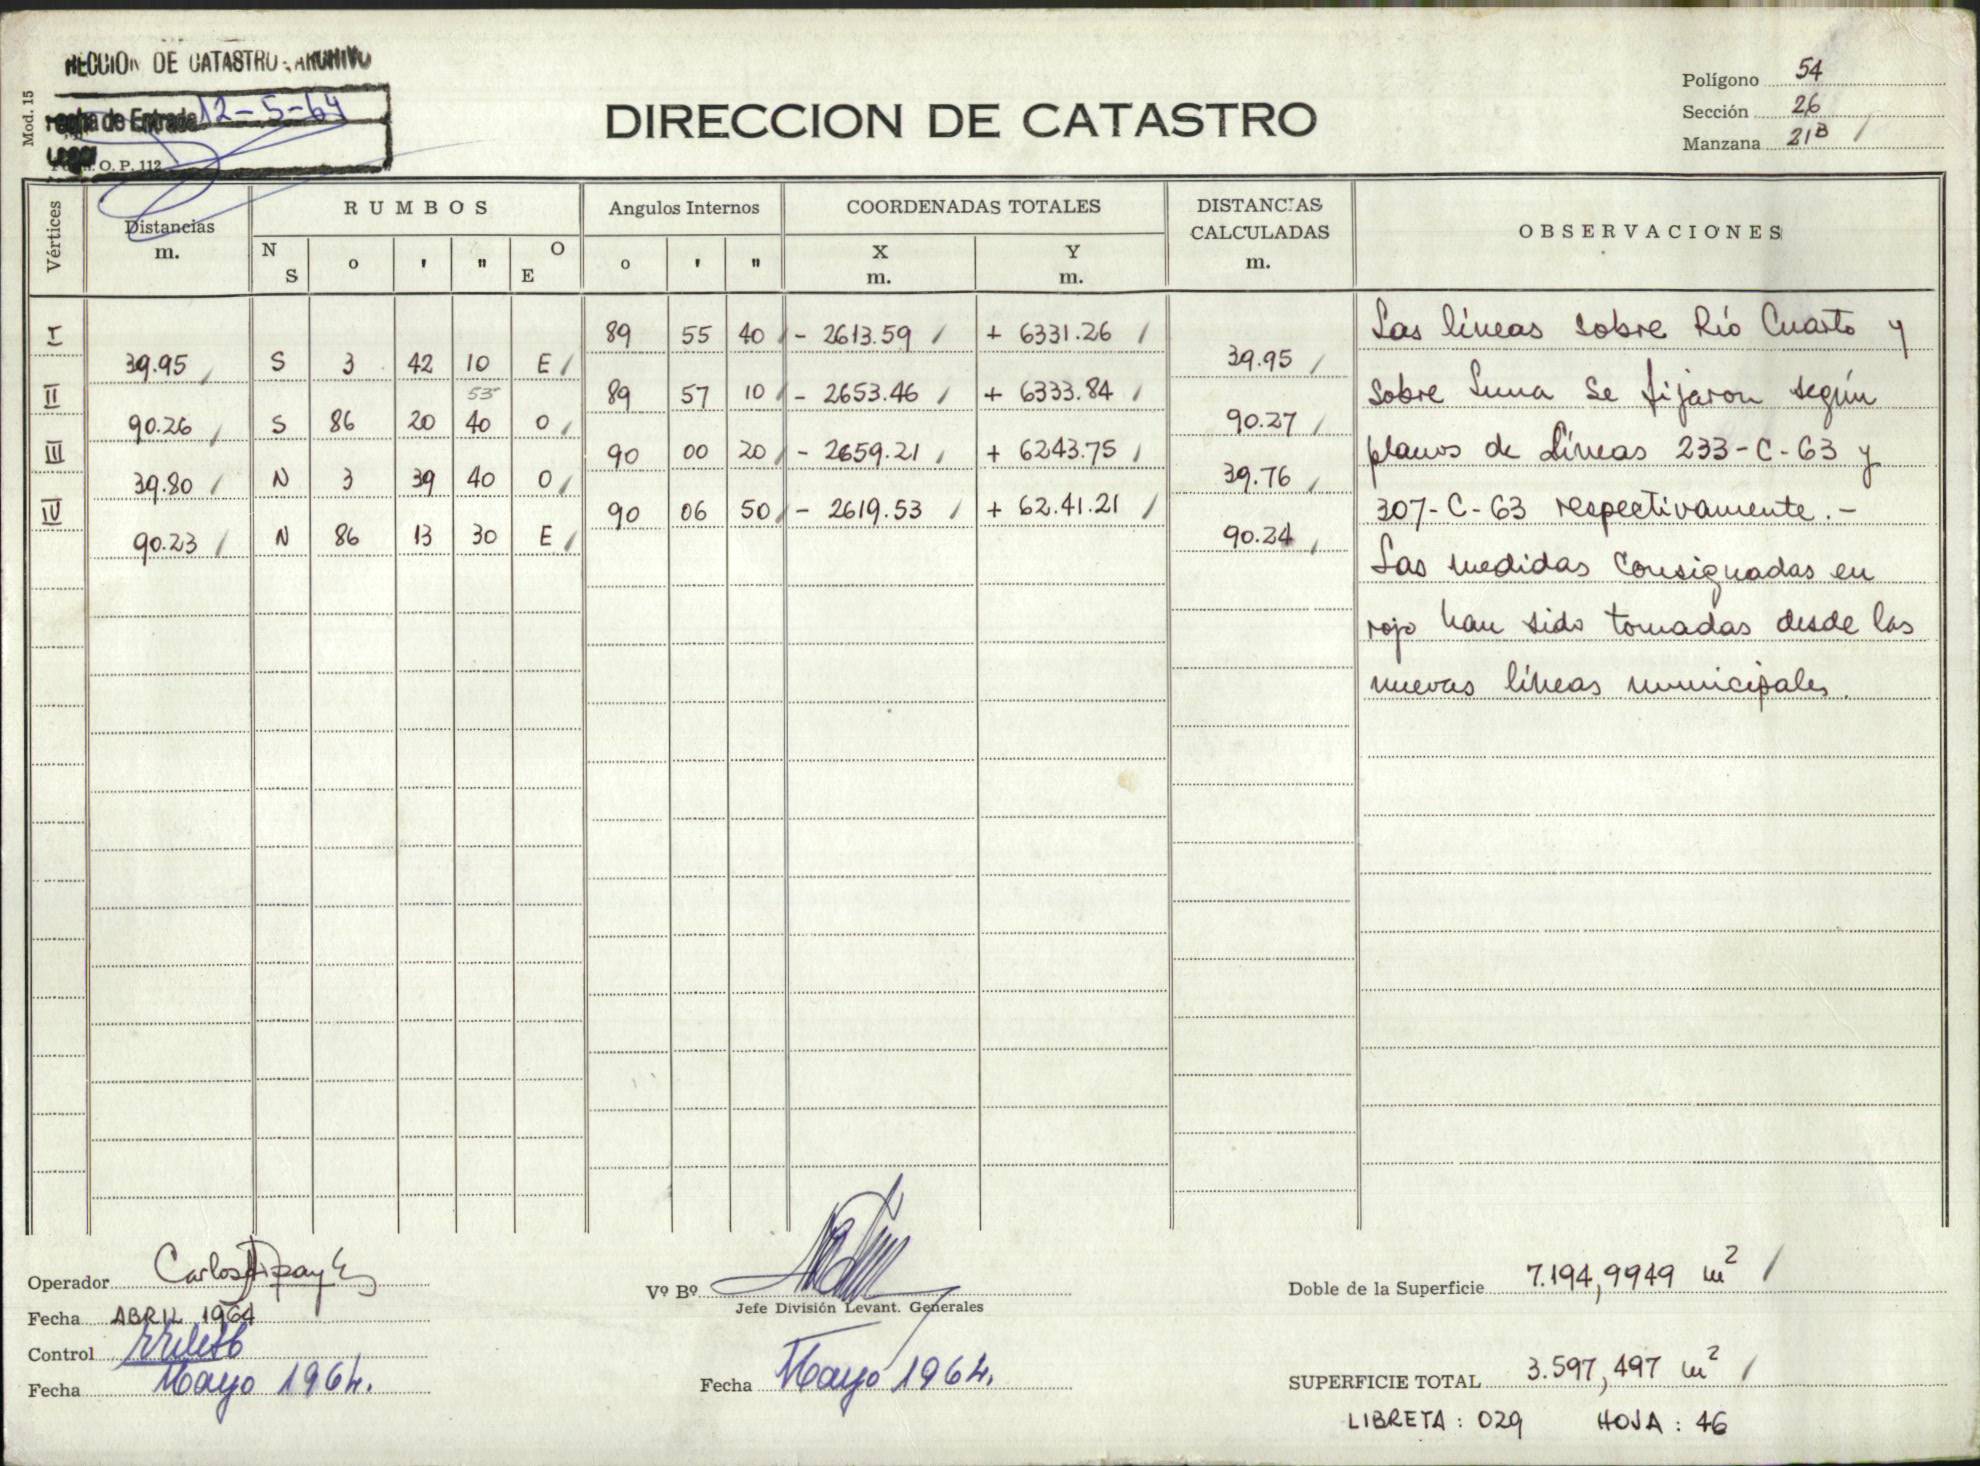 DIRECCION DE CATASTRO - ARCHIVO
Fecha de Entrada 12-5-64
Mod. 15
O. P. 112
DIRECCION DE CATASTRO
Polígono 54
Sección 26
Manzana 21B /
Vértices Distancias m. RUMBOS Angulos Internos COORDENADAS TOTALES DISTANCIAS CALCULADAS m. OBSERVACIONES
N S o ' " O E o ' " X m. Y m.
I 89 55 40 - 2613.59 + 6331.26
39.95 S 3 42 10 E 39.95
53
II 89 57 10 - 2653.46 + 6333.84
90.26 S 86 20 40 O 90.27
III 90 00 20 - 2659.21 + 6243.75
39.80 N 3 39 40 O 39.76
IV 90 06 50 - 2619.53 + 62.41.21
90.23 N 86 13 30 E 90.24
Las líneas sobre Río Cuarto y
sobre Luna se fijaron según
planos de Líneas 233-C-63 y
307-C-63 respectivamente.-
Las medidas consignadas en
rojo han sido tomadas desde las
nuevas líneas municipales.
Operador Carlos
Fecha ABRIL 1964
Control
Fecha Mayo 1964.
Vº Bº
Jefe División Levant. Generales
Fecha Mayo 1964.
Doble de la Superficie 7.194,9949 m² /
SUPERFICIE TOTAL 3.597,497 m² /
LIBRETA : 029 HOJA : 46